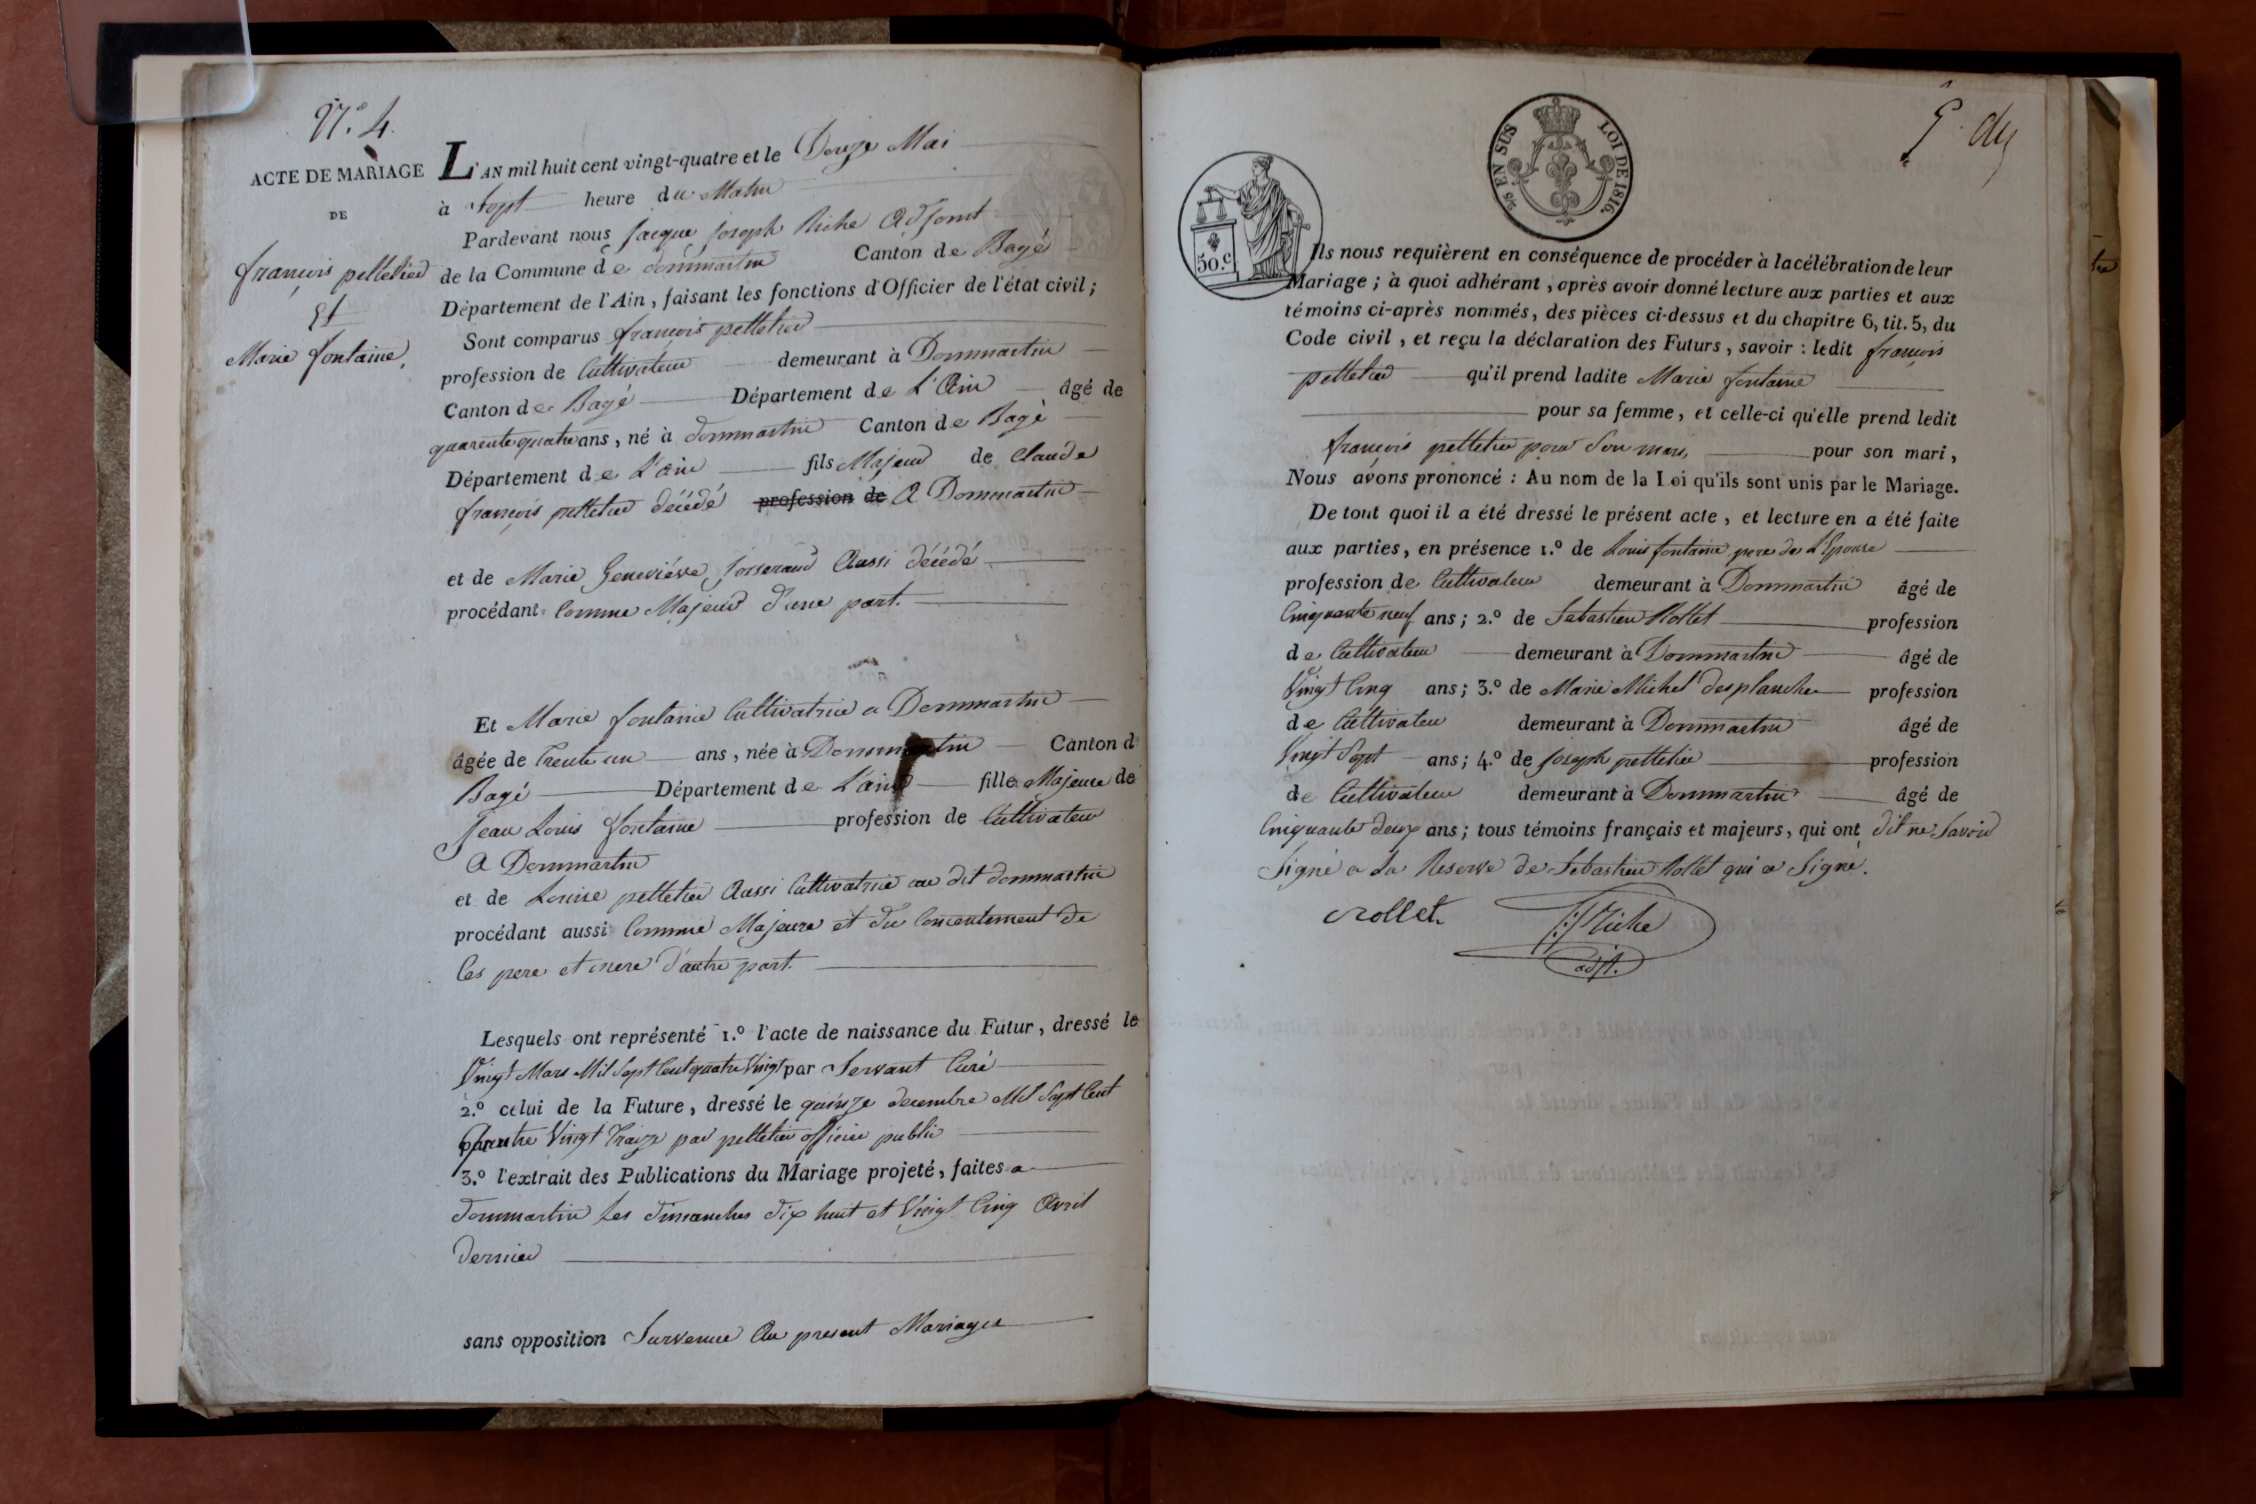 N.° 4.
ACTE DE MARIAGE
DE
françois pelletier
Et
Marie fontaine,
L'AN mil huit cent vingt-quatre et le Douze Mai
à Sept heure du Matin
Pardevant nous Jacque Joseph Riche Adjoint
de la Commune de dommartin Canton de Bagé
Département de l'Ain, faisant les fonctions d'Officier de l'état civil;
Sont comparus françois pelletier
profession de Cultivateur demeurant à Dommartin
Canton de Bagé Département de L'Ain âgé de
quarente quatre ans, né à dommartin Canton de Bagé
Département de L'ain fils Majeur de Claude
françois pelletier décédé profession de A Dommartin
et de Marie Geneviéve Josserand Aussi décédé
procédant Comme Majeur d'une part.
Et Marie fontaine Cultivatrice a Dommartin
âgée de Trente un ans, née à Dommartin Canton d
Bagé Département de L'ain fille Majeure de
Jean Louis fontaine profession de Cultivateur
A Dommartin
et de Louise pelletier Aussi Cultivatrice au dit dommartin
procédant aussi Comme Majeure et du Concentement de
Ces pere et mere d'autre part.
Lesquels ont représenté 1.° l'acte de naissance du Futur, dressé le
Vingt Mars Mil Sept Cent quatre Vingt par Servant Curé
2.° celui de la Future, dressé le quinze decembre Mil Sept Cent
quatre Vingt Traize par pelletier officier public
3.° l'extrait des Publications du Mariage projeté, faites a
dommartin Les dimanches dix huit et Vingt Cinq Avril
dernier
sans opposition Survenue Au present Mariage
25 EN SUS
LOI DE 1816.
50.c
Ils nous requièrent en conséquence de procéder à la célébration de leur
Mariage; à quoi adhérant, après avoir donné lecture aux parties et aux
témoins ci-après nommés, des pièces ci-dessus et du chapitre 6, tit. 5, du
Code civil, et reçu la déclaration des Futurs, savoir : ledit françois
pelletier qu'il prend ladite Marie fontaine
pour sa femme, et celle-ci qu'elle prend ledit
françois pelletier pour Son mari, pour son mari,
Nous avons prononcé : Au nom de la Loi qu'ils sont unis par le Mariage.
De tout quoi il a été dressé le présent acte, et lecture en a été faite
aux parties, en présence 1.° de Louis fontaine pere de L'Epouse
profession de Cultivateur demeurant à Dommartin âgé de
Cinquante neuf ans; 2.° de Sebastien Rollet profession
de Cultivateur demeurant à Dommartin âgé de
Vingt Cinq ans; 3.° de Marie Michel desplanche profession
de Cultivateu demeurant à Dommartin âgé de
Vingt Sept ans; 4.° de Joseph pelletier profession
de Cultivateur demeurant à Dommartin âgé de
Cinquante deux ans; tous témoins français et majeurs, qui ont dit ne Savoir
Signé a La Reserve de Sebastien Rollet qui a Signé.
Rollet
JJ Riche
adjt.